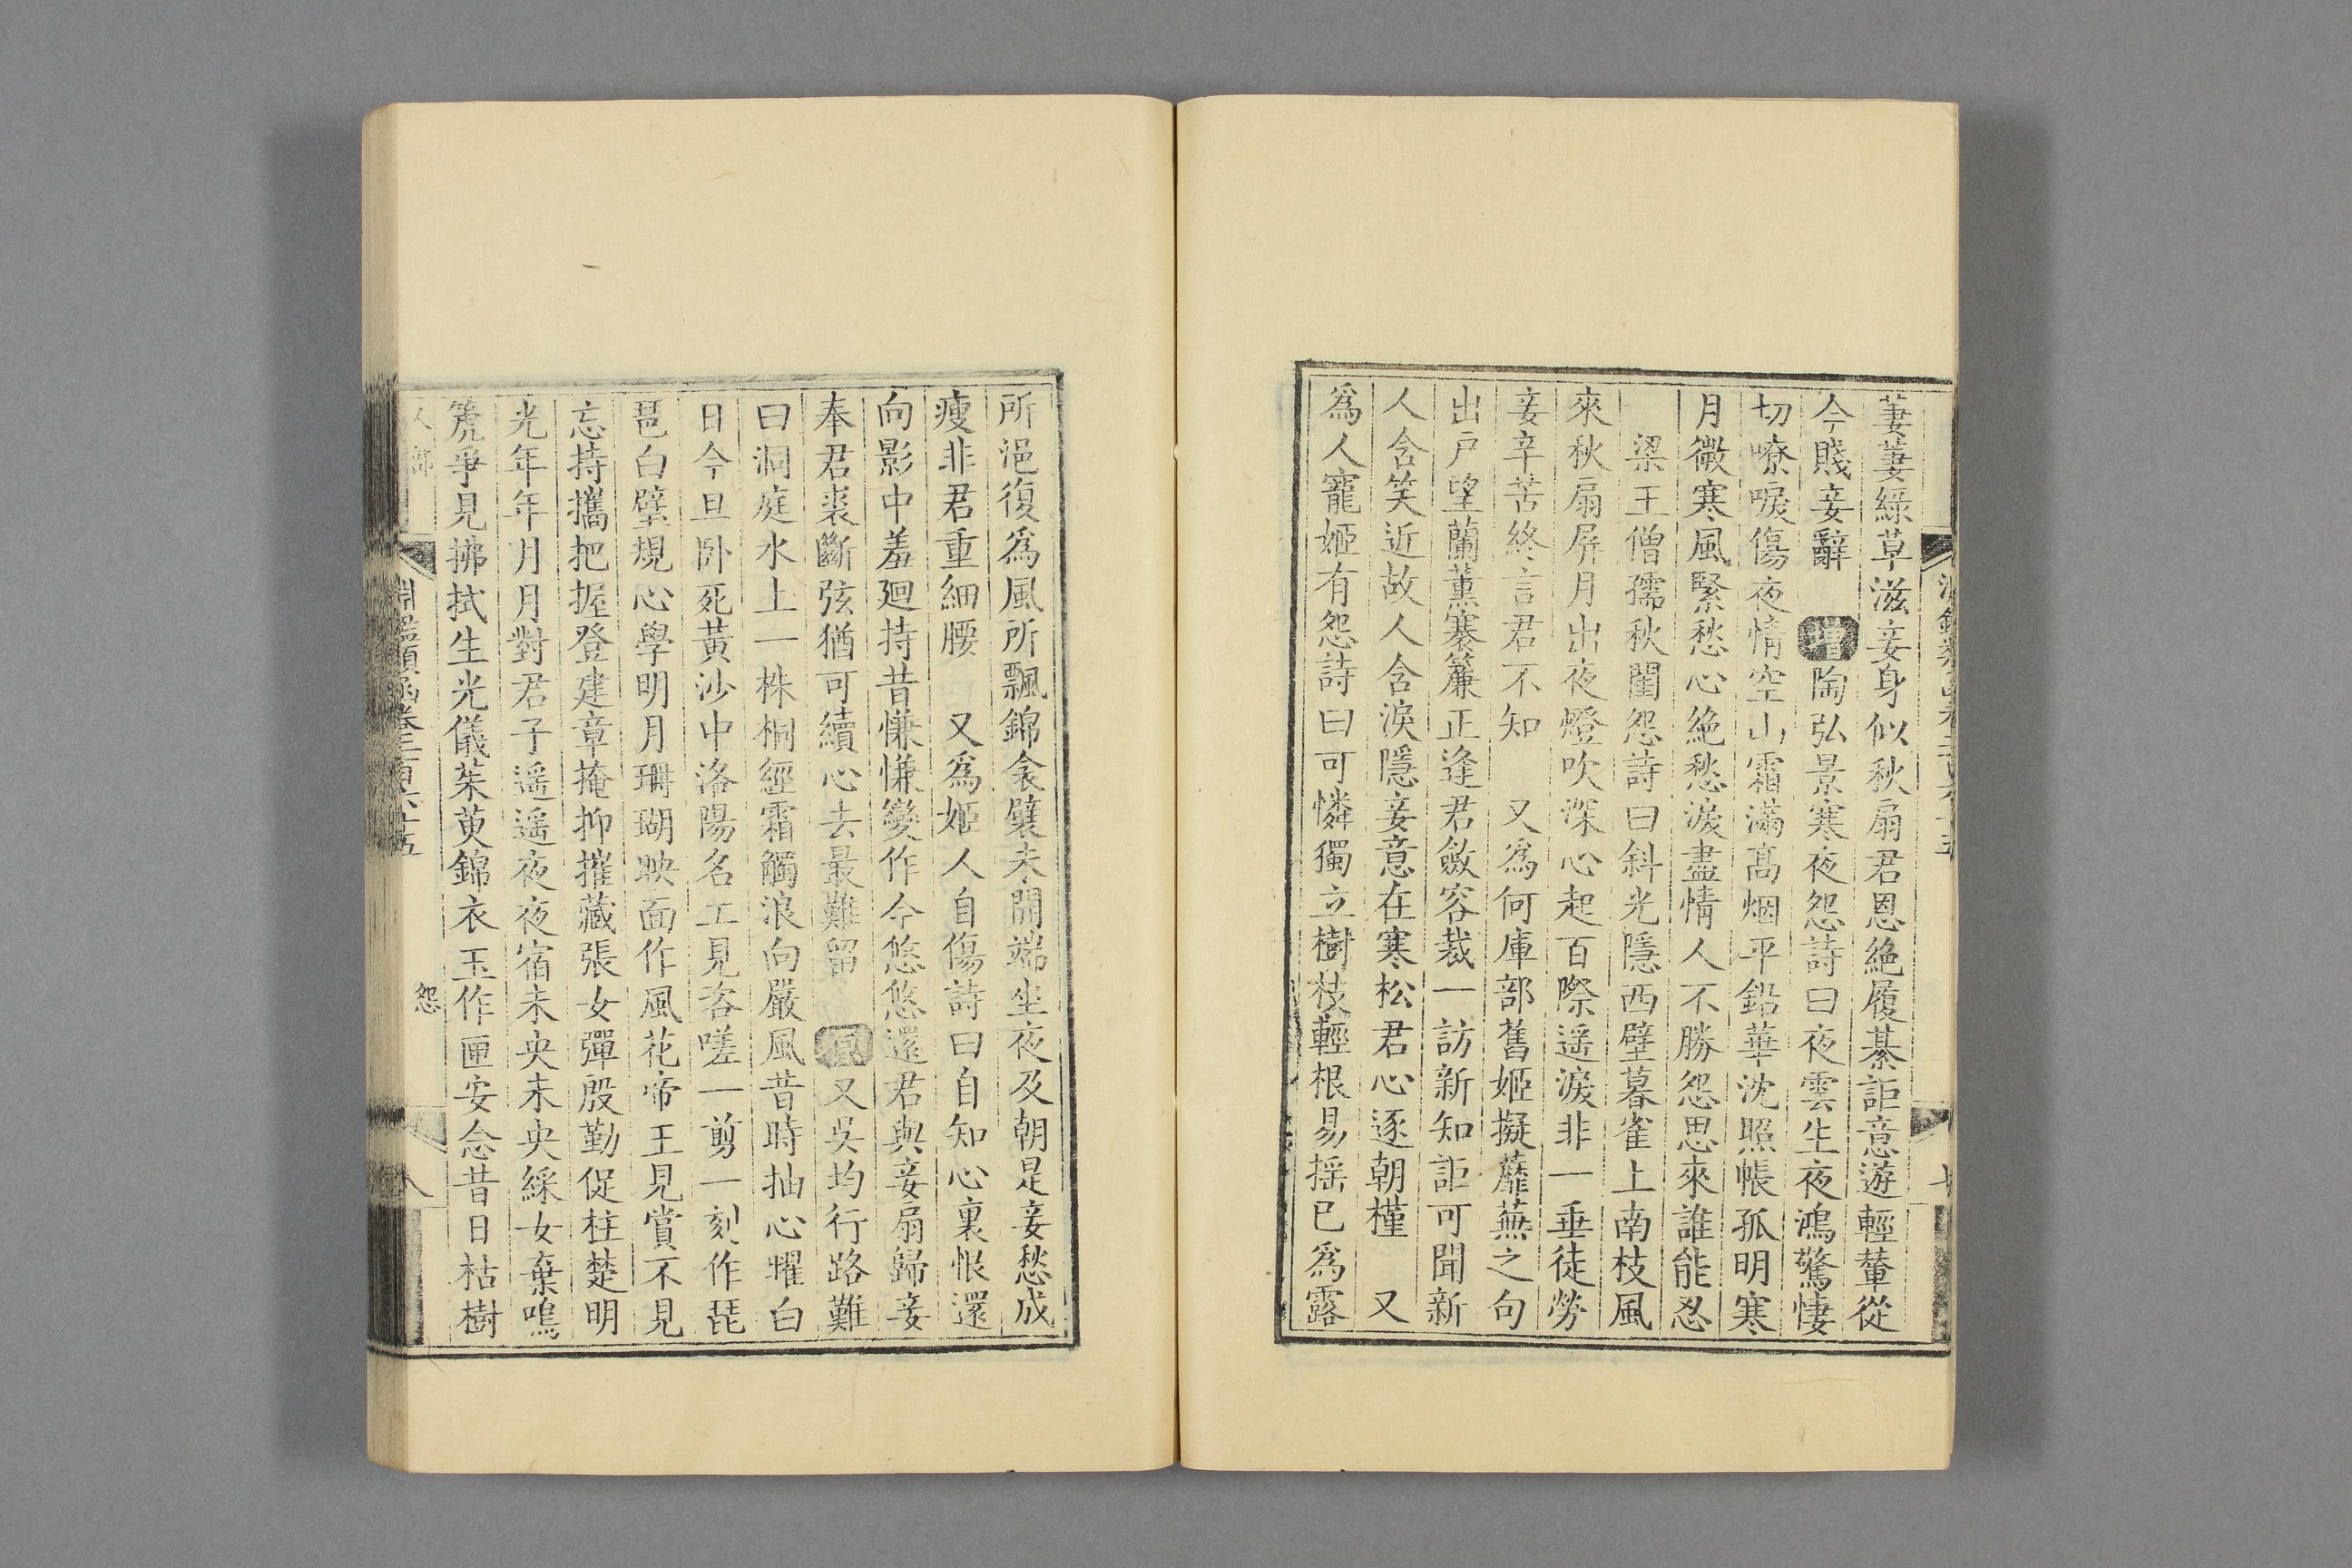 萋萋綠草滋妾身似秋扇君恩絶履綦詎意遊輕輦從
今賤妾辭 增陶弘景寒夜怨詩曰夜雲生夜鴻驚悽
切嘹唳傷夜情空山霜滿高烟平鉛華沈照帳孤明寒
月微寒風緊愁心絶愁淚盡情人不勝怨思來誰能忍
梁王僧孺秋閨怨詩曰斜光隱西壁暮雀上南枝風
來秋扇屏月出夜燈吹深心起百際遥淚非一垂徒勞
妾辛苦終言君不知 又爲何庫部舊姬擬蘼蕪之句
出戸望蘭薰褰簾正逢君斂容裁一訪新知詎可聞新
人含笑近故人含淚隱妾意在寒松君心逐朝槿 又
爲人寵姬有怨詩曰可憐獨立樹枝輕根易揺已爲露
所浥復爲風所飄錦衾襞未開端坐夜及朝是妾愁成
瘦非君重細腰 又爲姬人自傷詩曰自知心裏恨還
向影中羞廻持昔慊慊變作今悠悠還君與妾扇歸妾
奉君裘斷弦猶可續心去最難留 原又吳均行路難
曰洞庭水上一株桐經霜觸浪向嚴風昔時抽心燿白
日今旦卧死黃沙中洛陽名工見咨嗟一剪一刻作琵
琶白璧規心學明月珊瑚映面作風花帝王見賞不見
忘持攜把握登建章掩抑摧藏張女彈殷勤促柱楚明
光年年月月對君子遥遥夜夜宿未央未央綵女棄鳴
篪爭見拂拭生光儀茱萸錦衣玉作匣安念昔日枯樹
人部 淵鑑類函卷三百六十五 怨 八